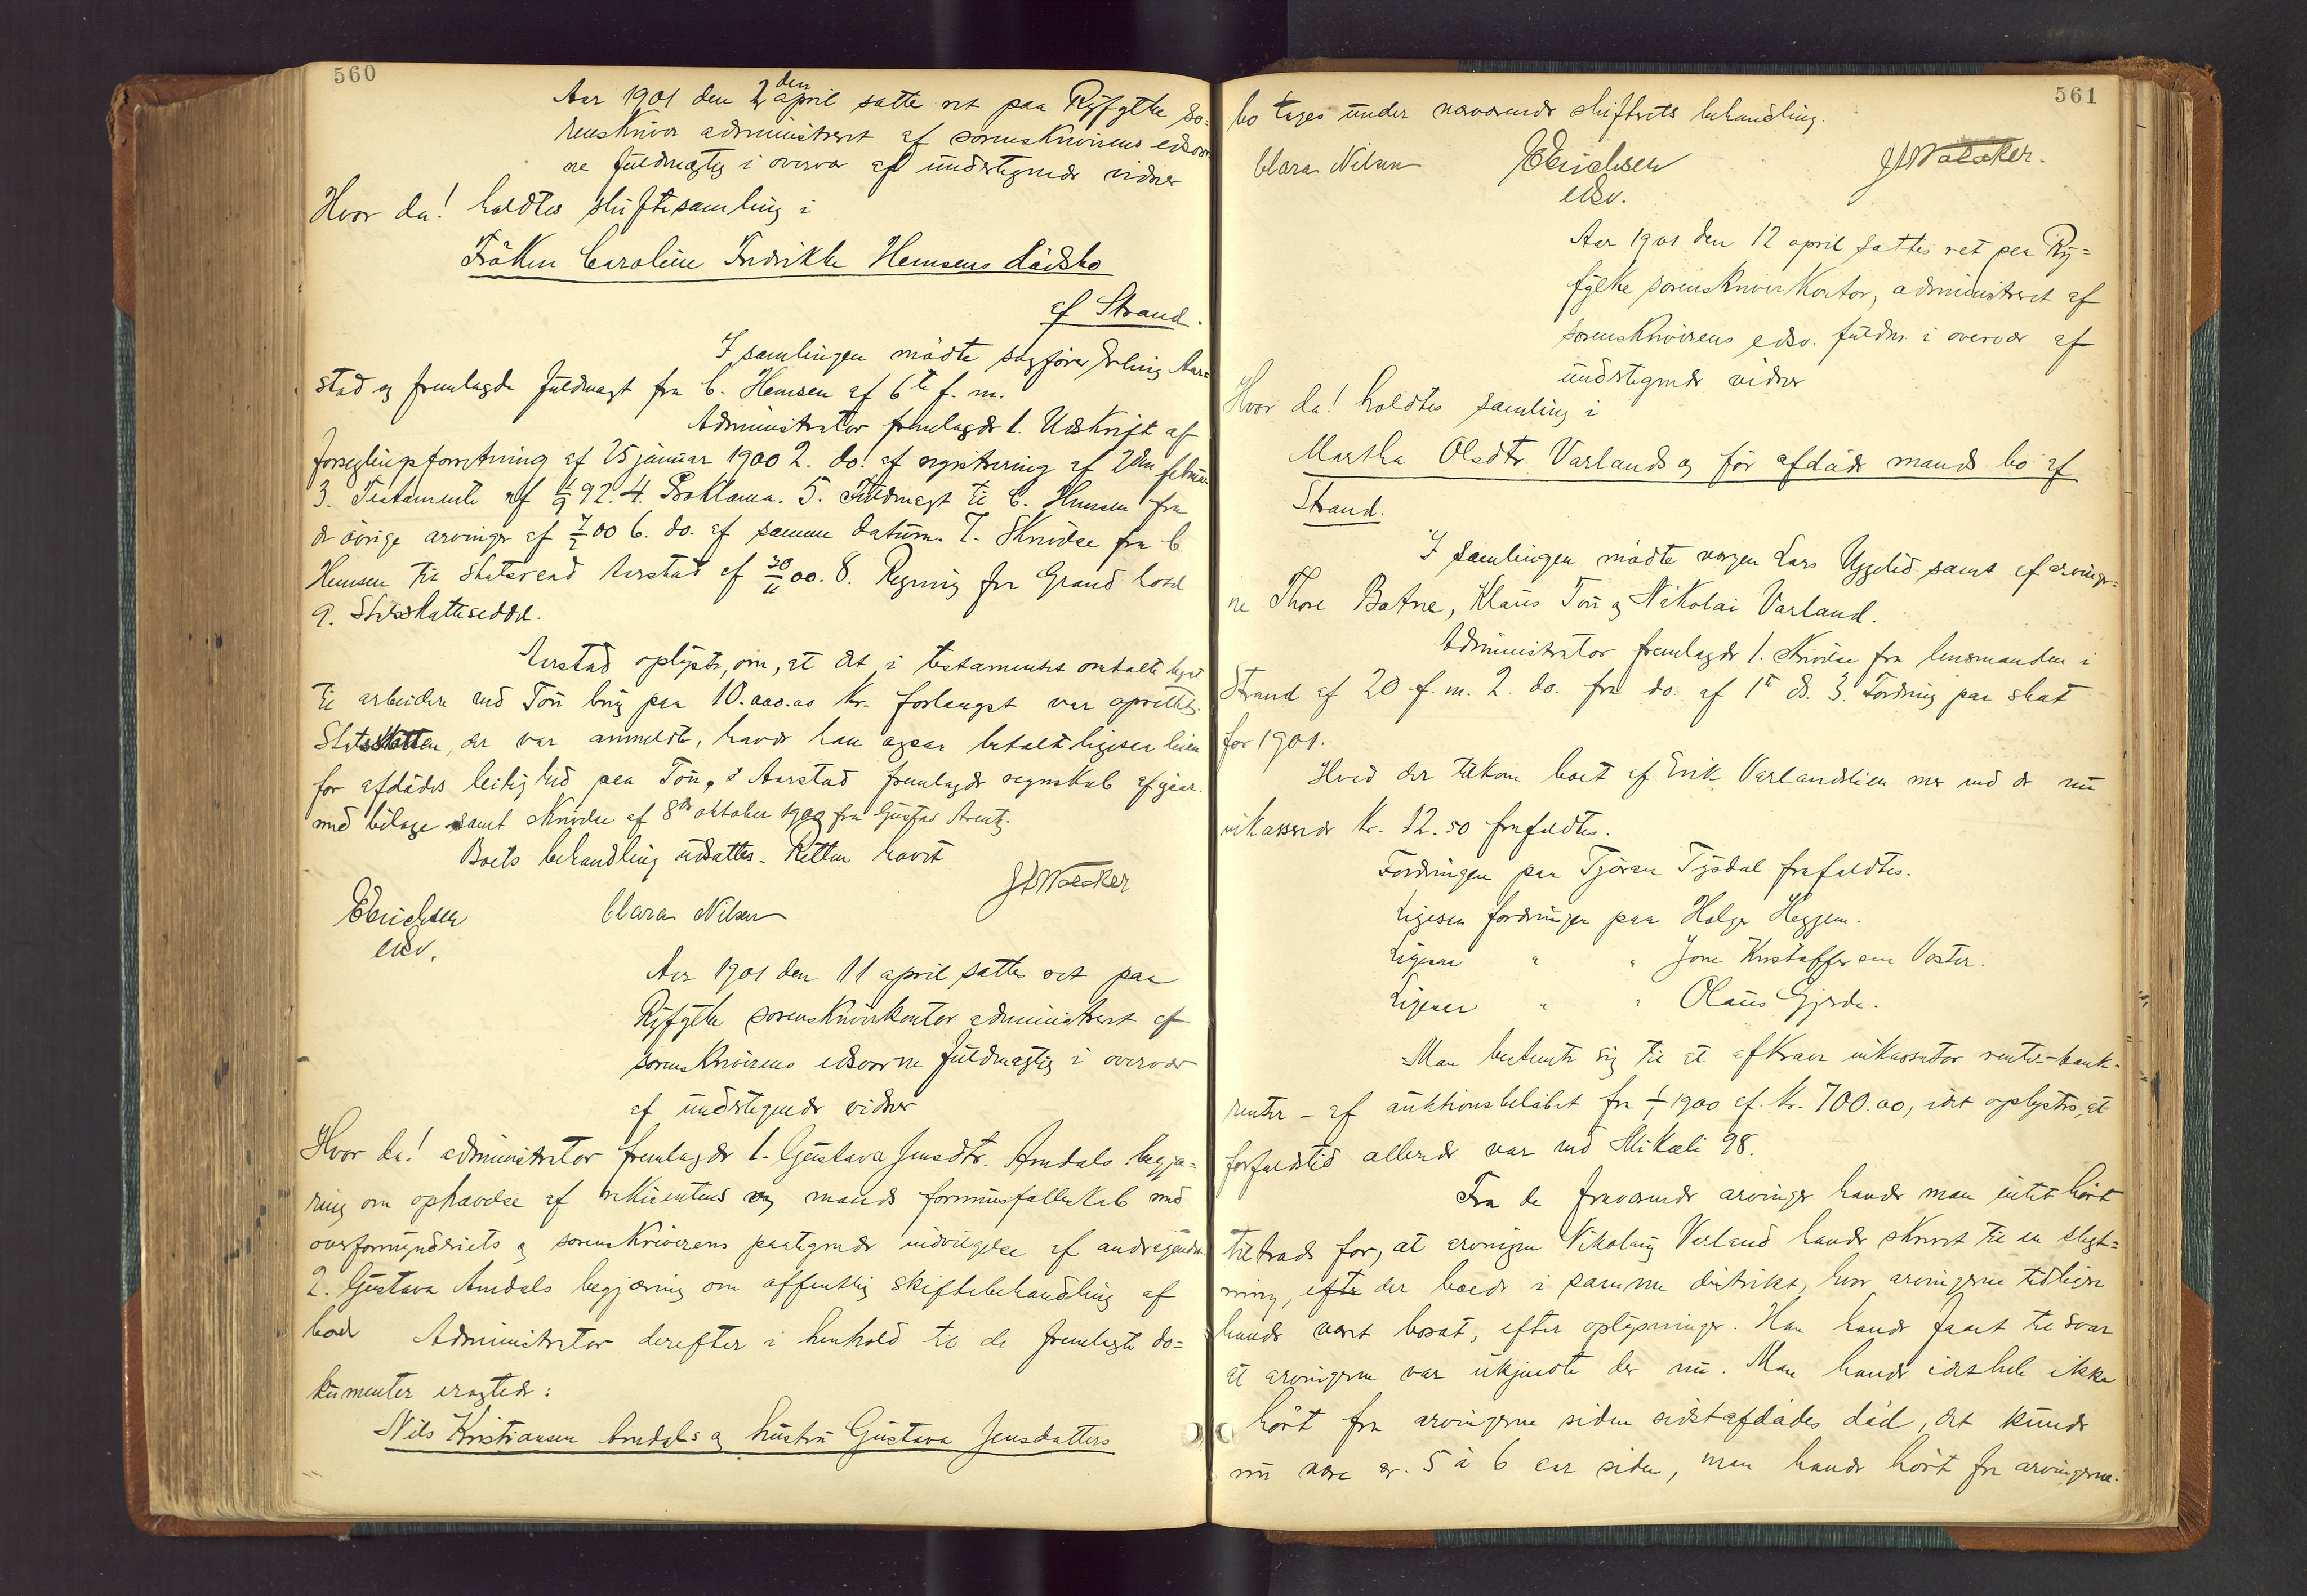 560
Aar 1901 den 2den april sattes ret paa Ryfylke so=
renskriver administreret af sorenskriverens edsvor
ne fuldmægtig i overvær af undertegnede vidner
Hvor da! holdtes skiftesamling i
Fröken Caroline Fredrikke Hemsens dödsbo
af Strand.
I samlingen mödte sagförer Erling Aar=
stad og fremlagde fuldmagt fra C. Hemsen af 6te f. m.
Administrator fremlagde 1. Udskrift af
forseglingsforretning af 25 januar 1900 2. do. af registrering af 2den februar
3. Testamente af 1/9 92. 4. Proklama. 5. Fuldmagt til C. Hemsen fra
de övrige arvinger af 7/2 00 6. do. af samme datum. 7. Skrivelse fra C
Hemsen til skatavend Aarstad af 30/11 00. 8. Regning fra Grand hotel
9. Skatteseddel.
Aarstad oplyste, om, at det i testamentet omtalte legat
til arbeidere ved Tou brug paa 10.000.00 kr. forlængst var oprettet.
Skatten, der var anmeldt, havde han ogsaa betalt ligesaa leien
for afdödes leilighed paa Tou. Aarstad fremlagde regnskab af igaar
med bilage samt skrivelse af 8de oktober 1900 fra Gustav Arentz.
Boets behandling udsattes. Retten hævet
JHWalcker
EErichsen Clara Nilsen
edsv.
Aar 1901 den 11 april sattes ret paa
Ryfylke sorenskriverkontor administreret af
sorenskriverens edsvorne fuldmægtig i overvær
af undertegnede vidner
Hvor da! administrator fremlagde 1. Gustava Jensdtr. Amdals begjæ=
ring om ophævelse af rekvirentens og mands formuesfællesskab med
overformynderiets og sorenskriverens paategnede indvilgelse af andragendet.
2. Gustava Amdals begjæring om offentlig skiftebehandling af
boet Administrator derefter i henhold til de fremlagte do=
kumenter eragtede:
Nils Kristiansen Amdals og hustru Gustava Jensdatters
561
bo tages under nærværende skifterets behandling.
Clara Nilsen EErichsen JHWalcker.
edsv.
Aar 1901 den 12 april sattes ret paa Ry=
fylke sorenskriverkontor, administreret af
sorenskriverens edsv. fuldm. i overvær af
undertegnede vidner
Hvor da! holdtes samling i
Martha Olsdtr. Varlands og för afdöde mands bo af
Strand.
I samlingen mödte værgen Lars Uggelid samt af arvinger=
ne Thore Botne, Klaus Tou og Nikolai Varland.
Administrator fremlagde 1. skrivelse fra lensmanden i
Strand af 20 f. m. 2. do. fra do. af 1te ds. 3. Fordring paa skat
for 1901.
Hvad der tilkom boet af Erik Varlandslien mer end de nu
inkasserede kr. 12.50 frafaldtes.
Fordringen paa Tjöran Tysdal frafaldtes.
Ligesaa fordringen paa Helge Heggem.
Ligesaa " " Jone Kristoffersen Voster.
Ligesaa " " Olaus Gjerde.
Man bestemte sig til at afkræve inkassator renter - bank-
renter - af auktionsbelöbet fra 1/1 1900 af kr. 700.00, idet oplystes, at
forfaldstid allerede var ved Mikæli 98.
Fra de fraværende arvinger havde man intet hört
tiltrods for, at arvingen Nikolai Varland havde skrevet til en slegt=
ning, der boede i samme distrikt, hvor arvingerne tidligere
havde været bosat, efter oplysninger. Han havde faaet til svar
at arvingerne var ukjendte der nu. Man havde idethele ikke
hört fra arvingerne siden sidstafdödes död, det kunde
nu være er. 5 à 6 aar siden, man havde hört fra arvingerne.